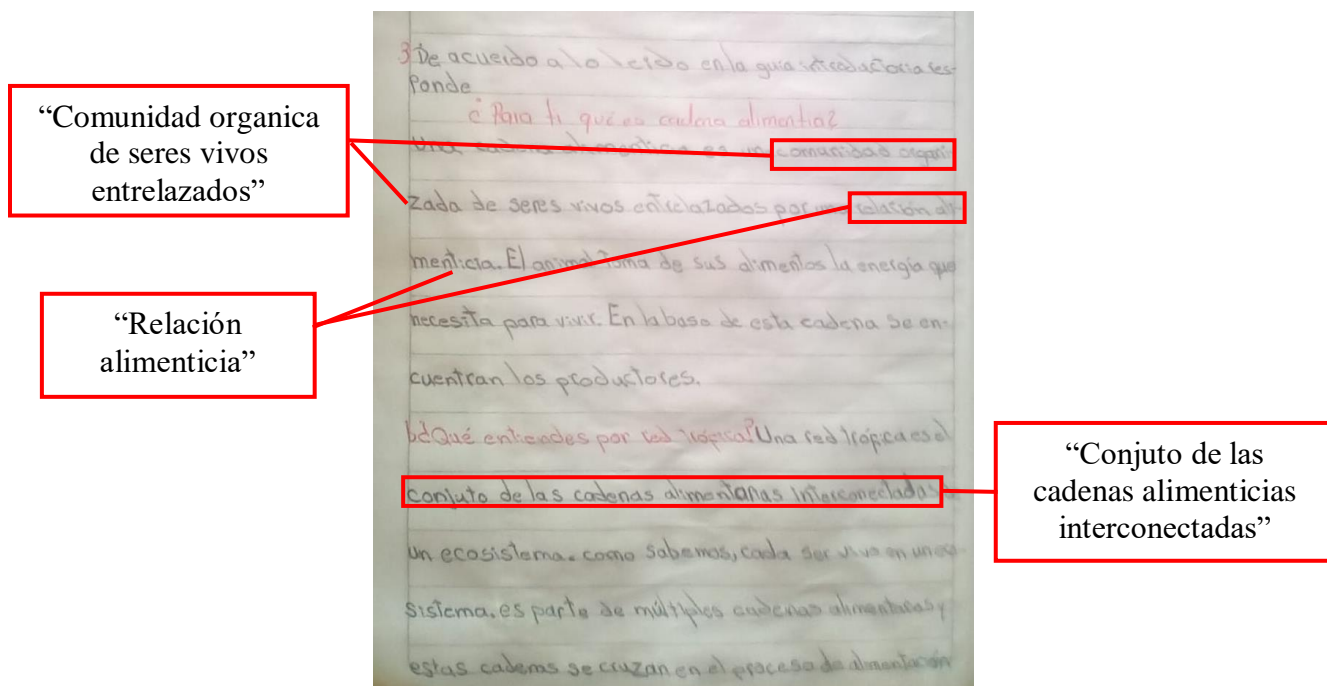 “Comunidad organica
de seres vivos
entrelazados”
“Relación
alimenticia”
3 De acuerdo a lo leido en la guia introductoria res-
ponde
¿Para ti qué es cadena alimentia?
Una cadena alimenticia es un comunidad organi-
zada de seres vivos entrelazados por una relación ali-
menticia. El animal toma de sus alimentos la energía que
necesita para vivir. En la base de esta cadena se en-
cuentran los productores.
b¿Qué entiendes por red trópica? Una red trópica es el
conjuto de las cadenas alimentarias interconectadas
un ecosistema. como sabemos, cada ser vivo en un eco-
sistema. es parte de múltiples cadenas alimentarias y
estas cadenas se cruzan en el proceso de alimentación
“Conjuto de las
cadenas alimenticias
interconectadas”